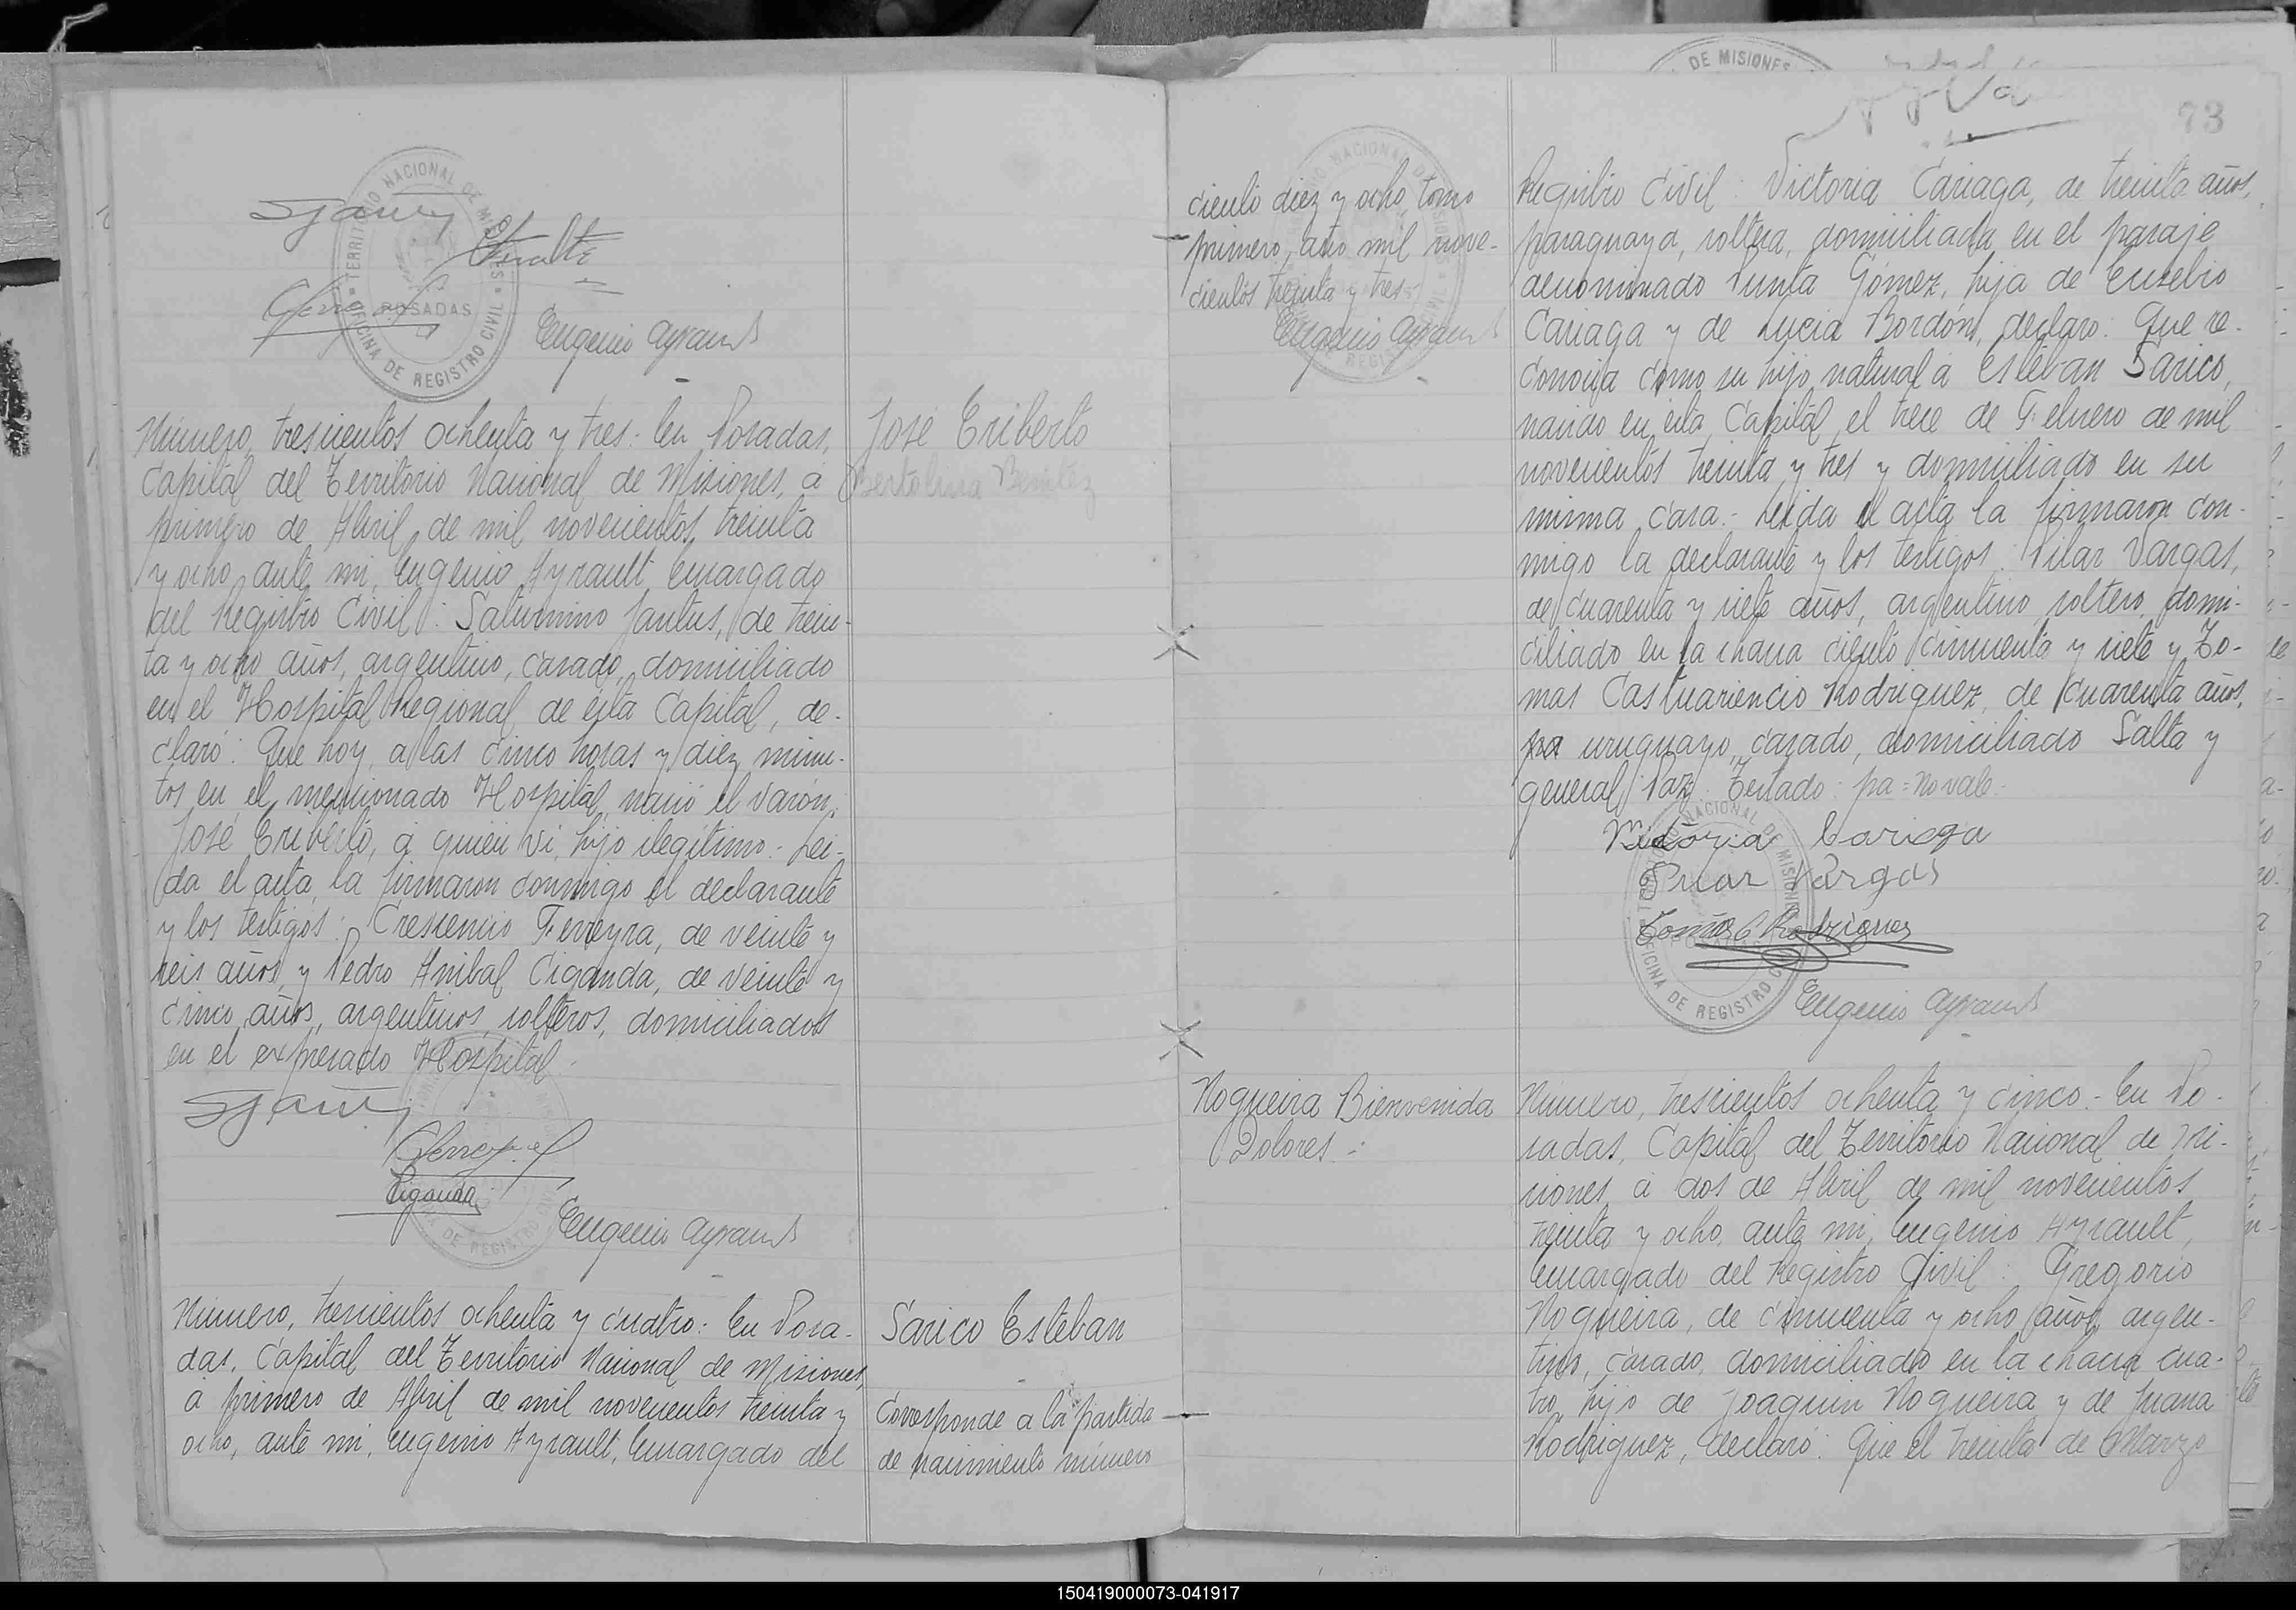 TERRITORIO NACIONAL DE MISIONES
OFICINA DE REGISTRO CIVIL
POSADAS
Eugenio Ayrault
Número, trescientos ochenta y tres:- En Posadas,
Capital del Territorio Nacional de Misiones, á
primero de Abril de mil novecientos treinta
y ocho, ante mi, Eugenio Ayrault, Encargado
del Registro Civil: Saturnino Jantus, de trein-
ta y ocho años, argentino, casado, domiciliado
en el Hospital Regional de ésta Capital, de-
claró: Que hoy, a las cinco horas y diez minu-
tos en el mencionado Hospital, nació el varón:
José Eriberto, á quién vi, hijo ilegítimo:- Lei-
da el acta, la firmaron conmigo el declarante
y los testigos: Crescencio Ferreyra, de veinte y
seis años, y Pedro Anibal Ciganda, de veinte y
cinco años, argentinos, solteros, domiciliados
en el expresado Hospital.
José Eriberto
Bertolina Benitez
Ciganda
Eugenio Ayrault
Número, trescientos ochenta y cuatro: En Posa-
das, Capital del Territorio Nacional de Misiones,
á primero de Abril de mil novecientos treinta y
ocho, ante mi, Eugenio Ayrault, Encargado del
Sarico Esteban
Corresponde a la partida
de nacimiento número
DE MISIONES
73
ciento diez y ocho, tomo
primero, año mil nove-
cientos treinta y tres-
Eugenio Ayrault
Registro Civil: Victoria Cariaga, de treinta años,
paraguaya, soltera, domiciliada en el paraje
denominado Punta Gómez, hija de Eusebio
Cariaga y de Lucia Bordón, declaro: Que re-
conocia como su hijo natural á Esteban Sarico,
nacido en ésta Capital, el trece de Febrero de mil
novecientos treinta y tres y domiciliado en su
misma casa.- Leida el acta la firmaron con-
migo la declarante y los testigos: Pilar Vargas,
de cuarenta y siete años, argentino, soltero, domi-
ciliado en la chacra ciento cincuenta y siete y To-
mas Castuariencio Rodriguez, de cuarenta años,
pa uruguayo, casado, domiciliado Salta y
general Paz. Testado: pa=no vale.-
Victoria Cariaga
Pilar Vargas
Tomás C Rodríguez
TERRITORIO NACIONAL DE MISIONES
OFICINA DE REGISTRO CIVIL
Eugenio Ayrault
Nogueira Bienvenida
Dolores :-
Número, trescientos ochenta y cinco:- En Po-
sadas, Capital del Territorio Nacional de Mi-
siones, á dos de Abril de mil novecientos
treinta y ocho, ante mi, Eugenio Ayrault,
Encargado del Registro Civil: Gregorio
Nogueira, de cincuenta y ocho años, argen-
tino, casado, domiciliado en la chacra cua-
tro, hijo de Joaquin Nogueira y de Juana
Rodriguez, declaró: Que el treinta de Marzo
150419000073-041917